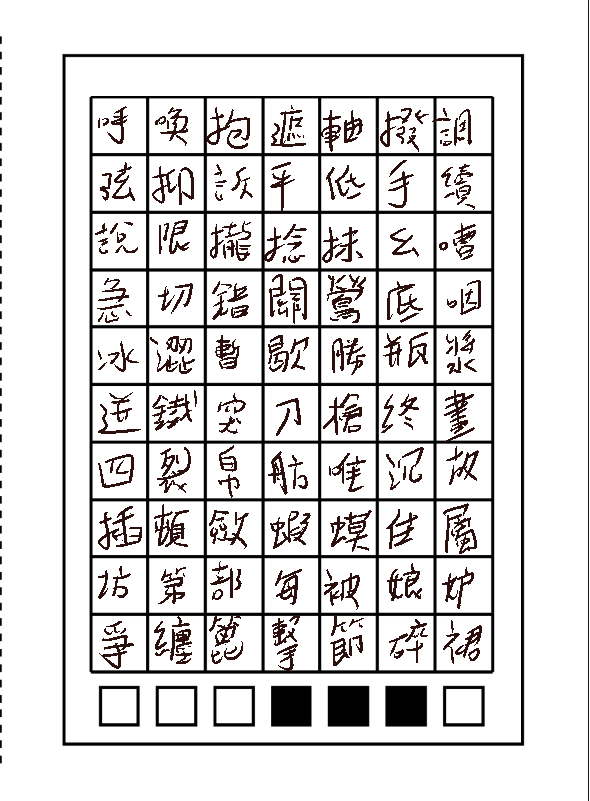 呼喚抱遮軸撥調
弦抑訴平低手續
說限攏捻抹幺嘈
急切錯關鶯底咽
冰澀暫歇勝瓶漿
迸鐵突刀槍終畫
四裂帛舫唯沉故
插頓斂蝦蟆住屬
坊第部每被娘妒
爭纏篦擊節碎裙